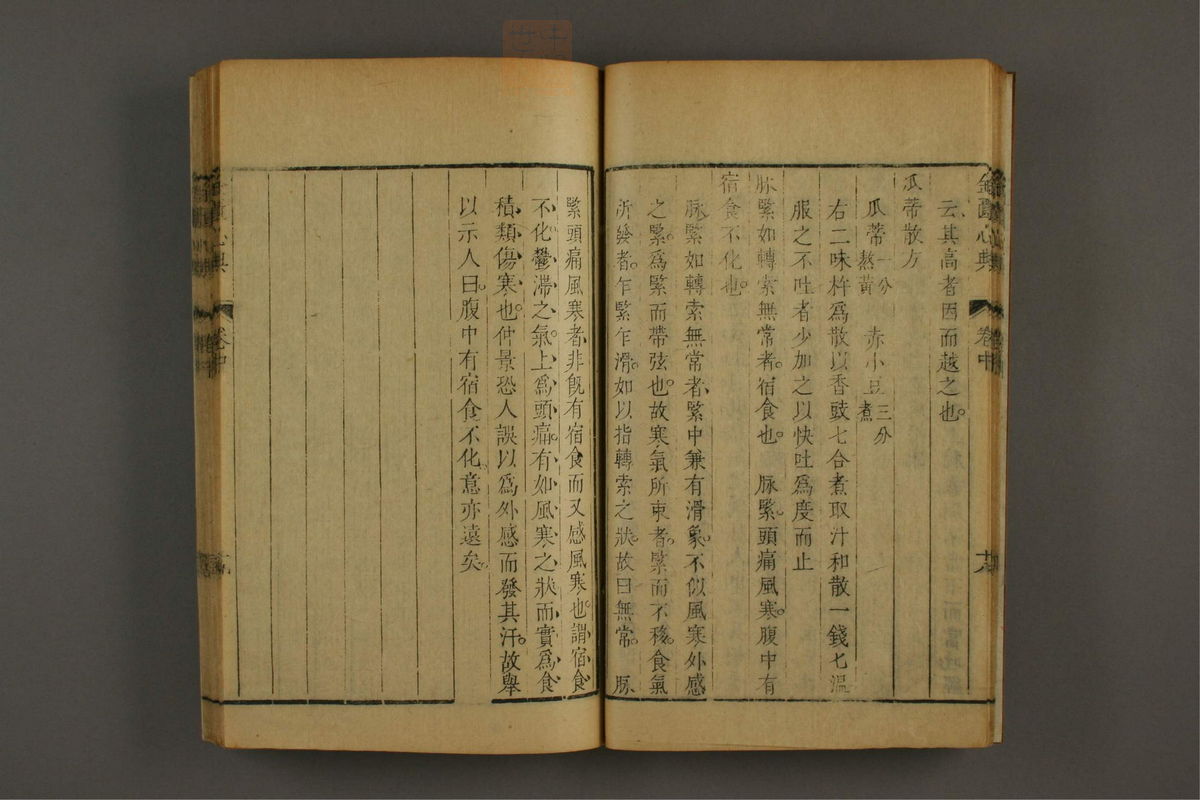 金匱心典 卷中 十六
云其高者因而越之也
瓜蒂散方
瓜蒂一分熬黃 赤小豆三分煮
右二味杵爲散以香豉七合煮取汁和散一錢匕溫
服之不吐者少加之以快吐爲度而止
脉緊如轉索無常者宿食也 脉緊頭痛風寒腹中有
宿食不化也
脉緊如轉索無常者緊中兼有滑象不似風寒外感
之緊爲緊而帶弦也故寒氣所束者緊而不移食氣
所發者乍緊乍滑如以指轉索之狀故曰無常 脉
緊頭痛風寒者非旣有宿食而又感風寒也謂宿食
不化鬱滯之氣上爲頭痛有如風寒之狀而實爲食
積類傷寒也仲景恐人誤以爲外感而發其汗故舉
以示人曰腹中有宿食不化意亦遠矣